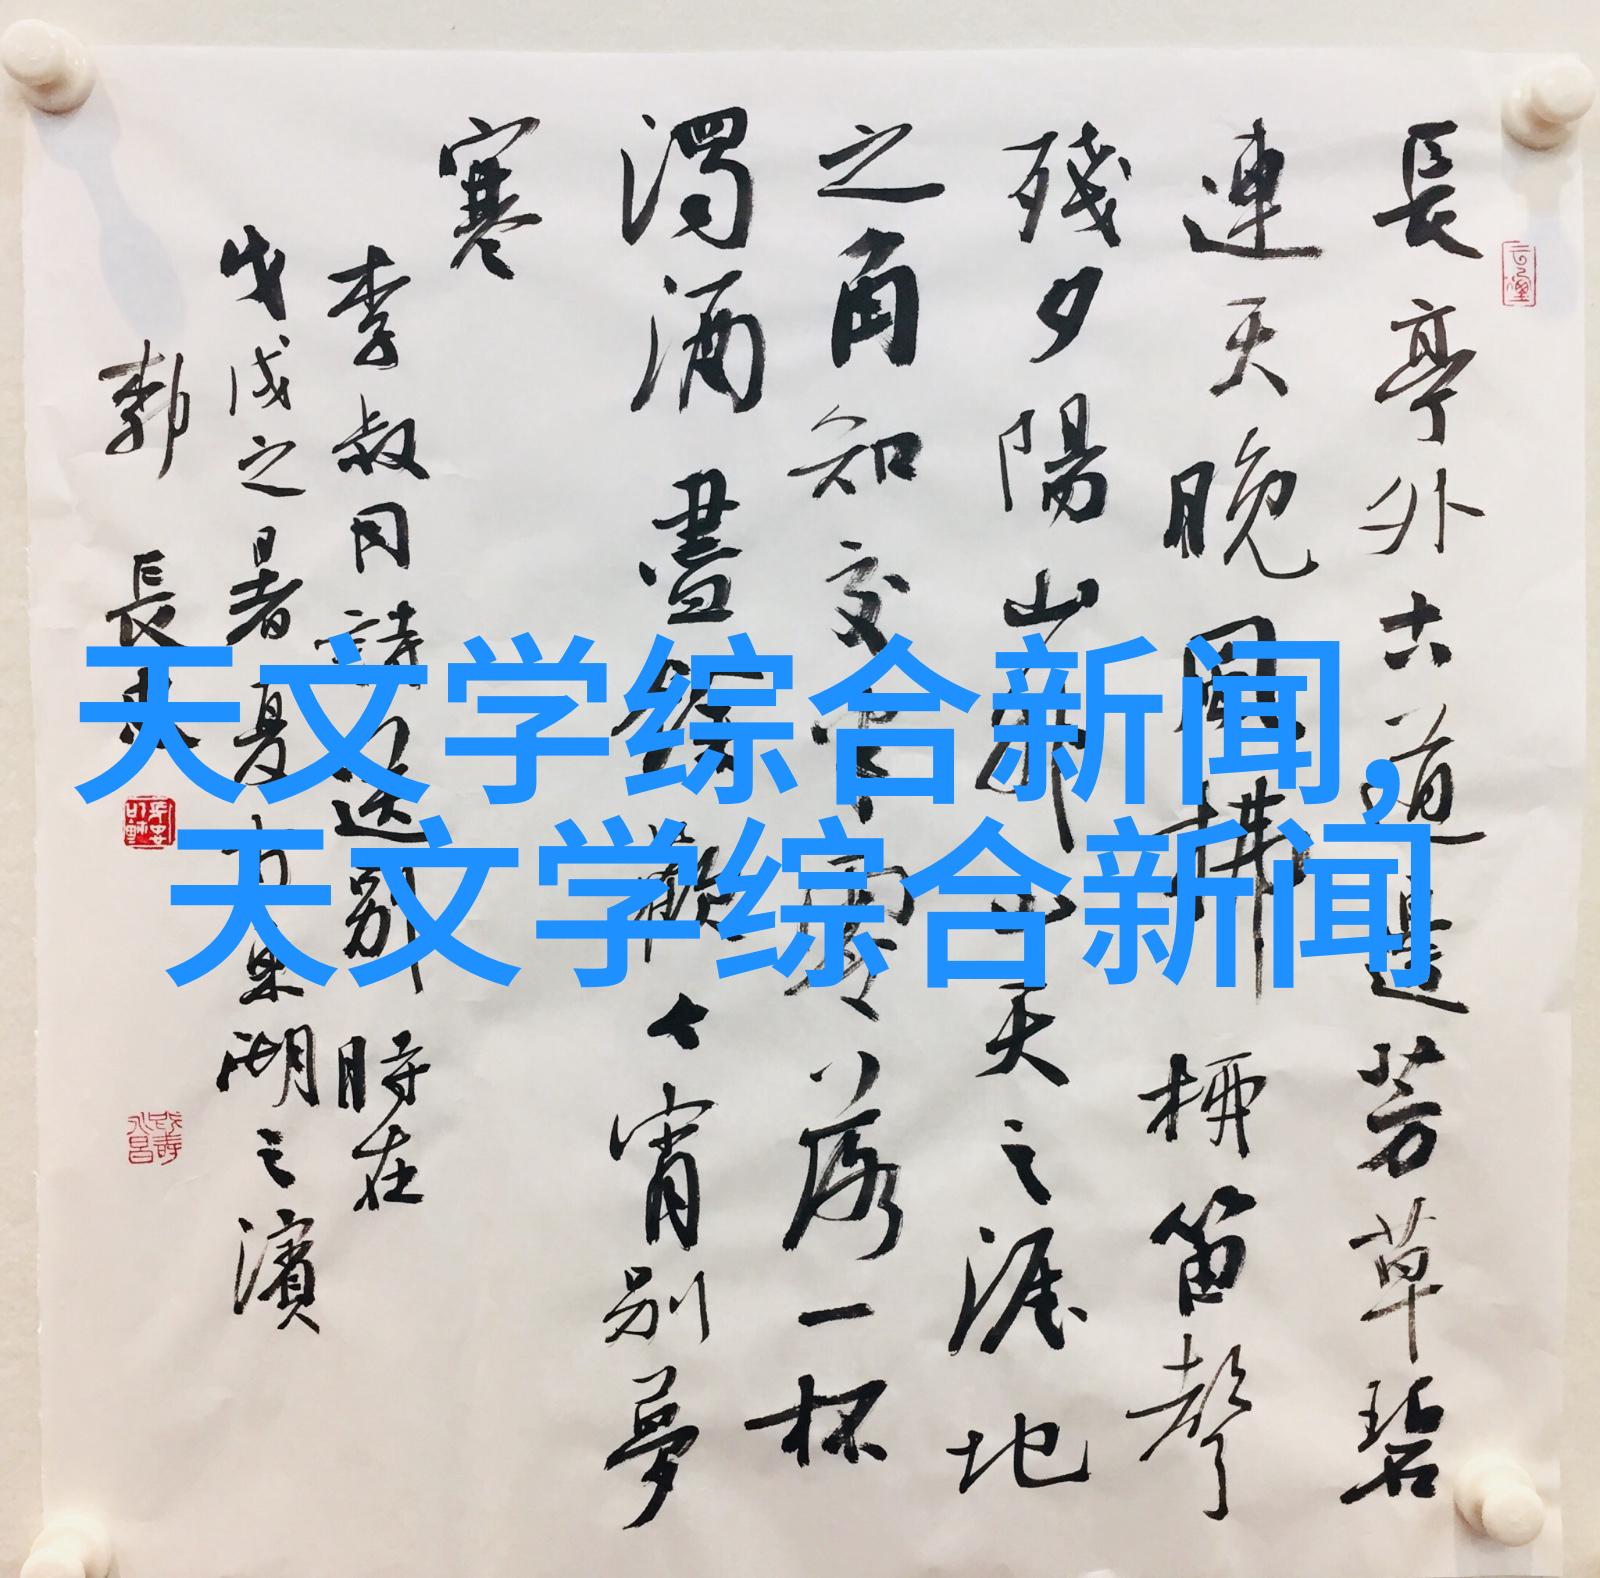 長亭外古道邊芳草碧
連天晚風拂柳笛聲
殘夕陽山外山天之涯地
之角知交半零落一杯
濁酒盡餘歡今宵別夢
寒
李叔同詩送別時在
戊戌之暑夏巢湖之濱
郭長
天文学综合新闻,
天文学综合新闻